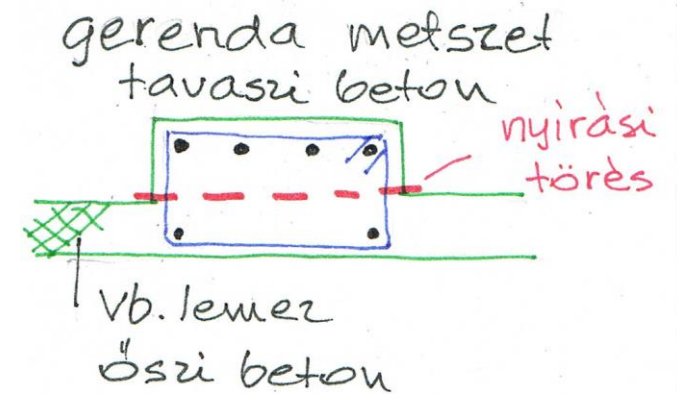 gerenda metszet
tavaszi beton
nyirási
törés
vb. lemez
őszi beton